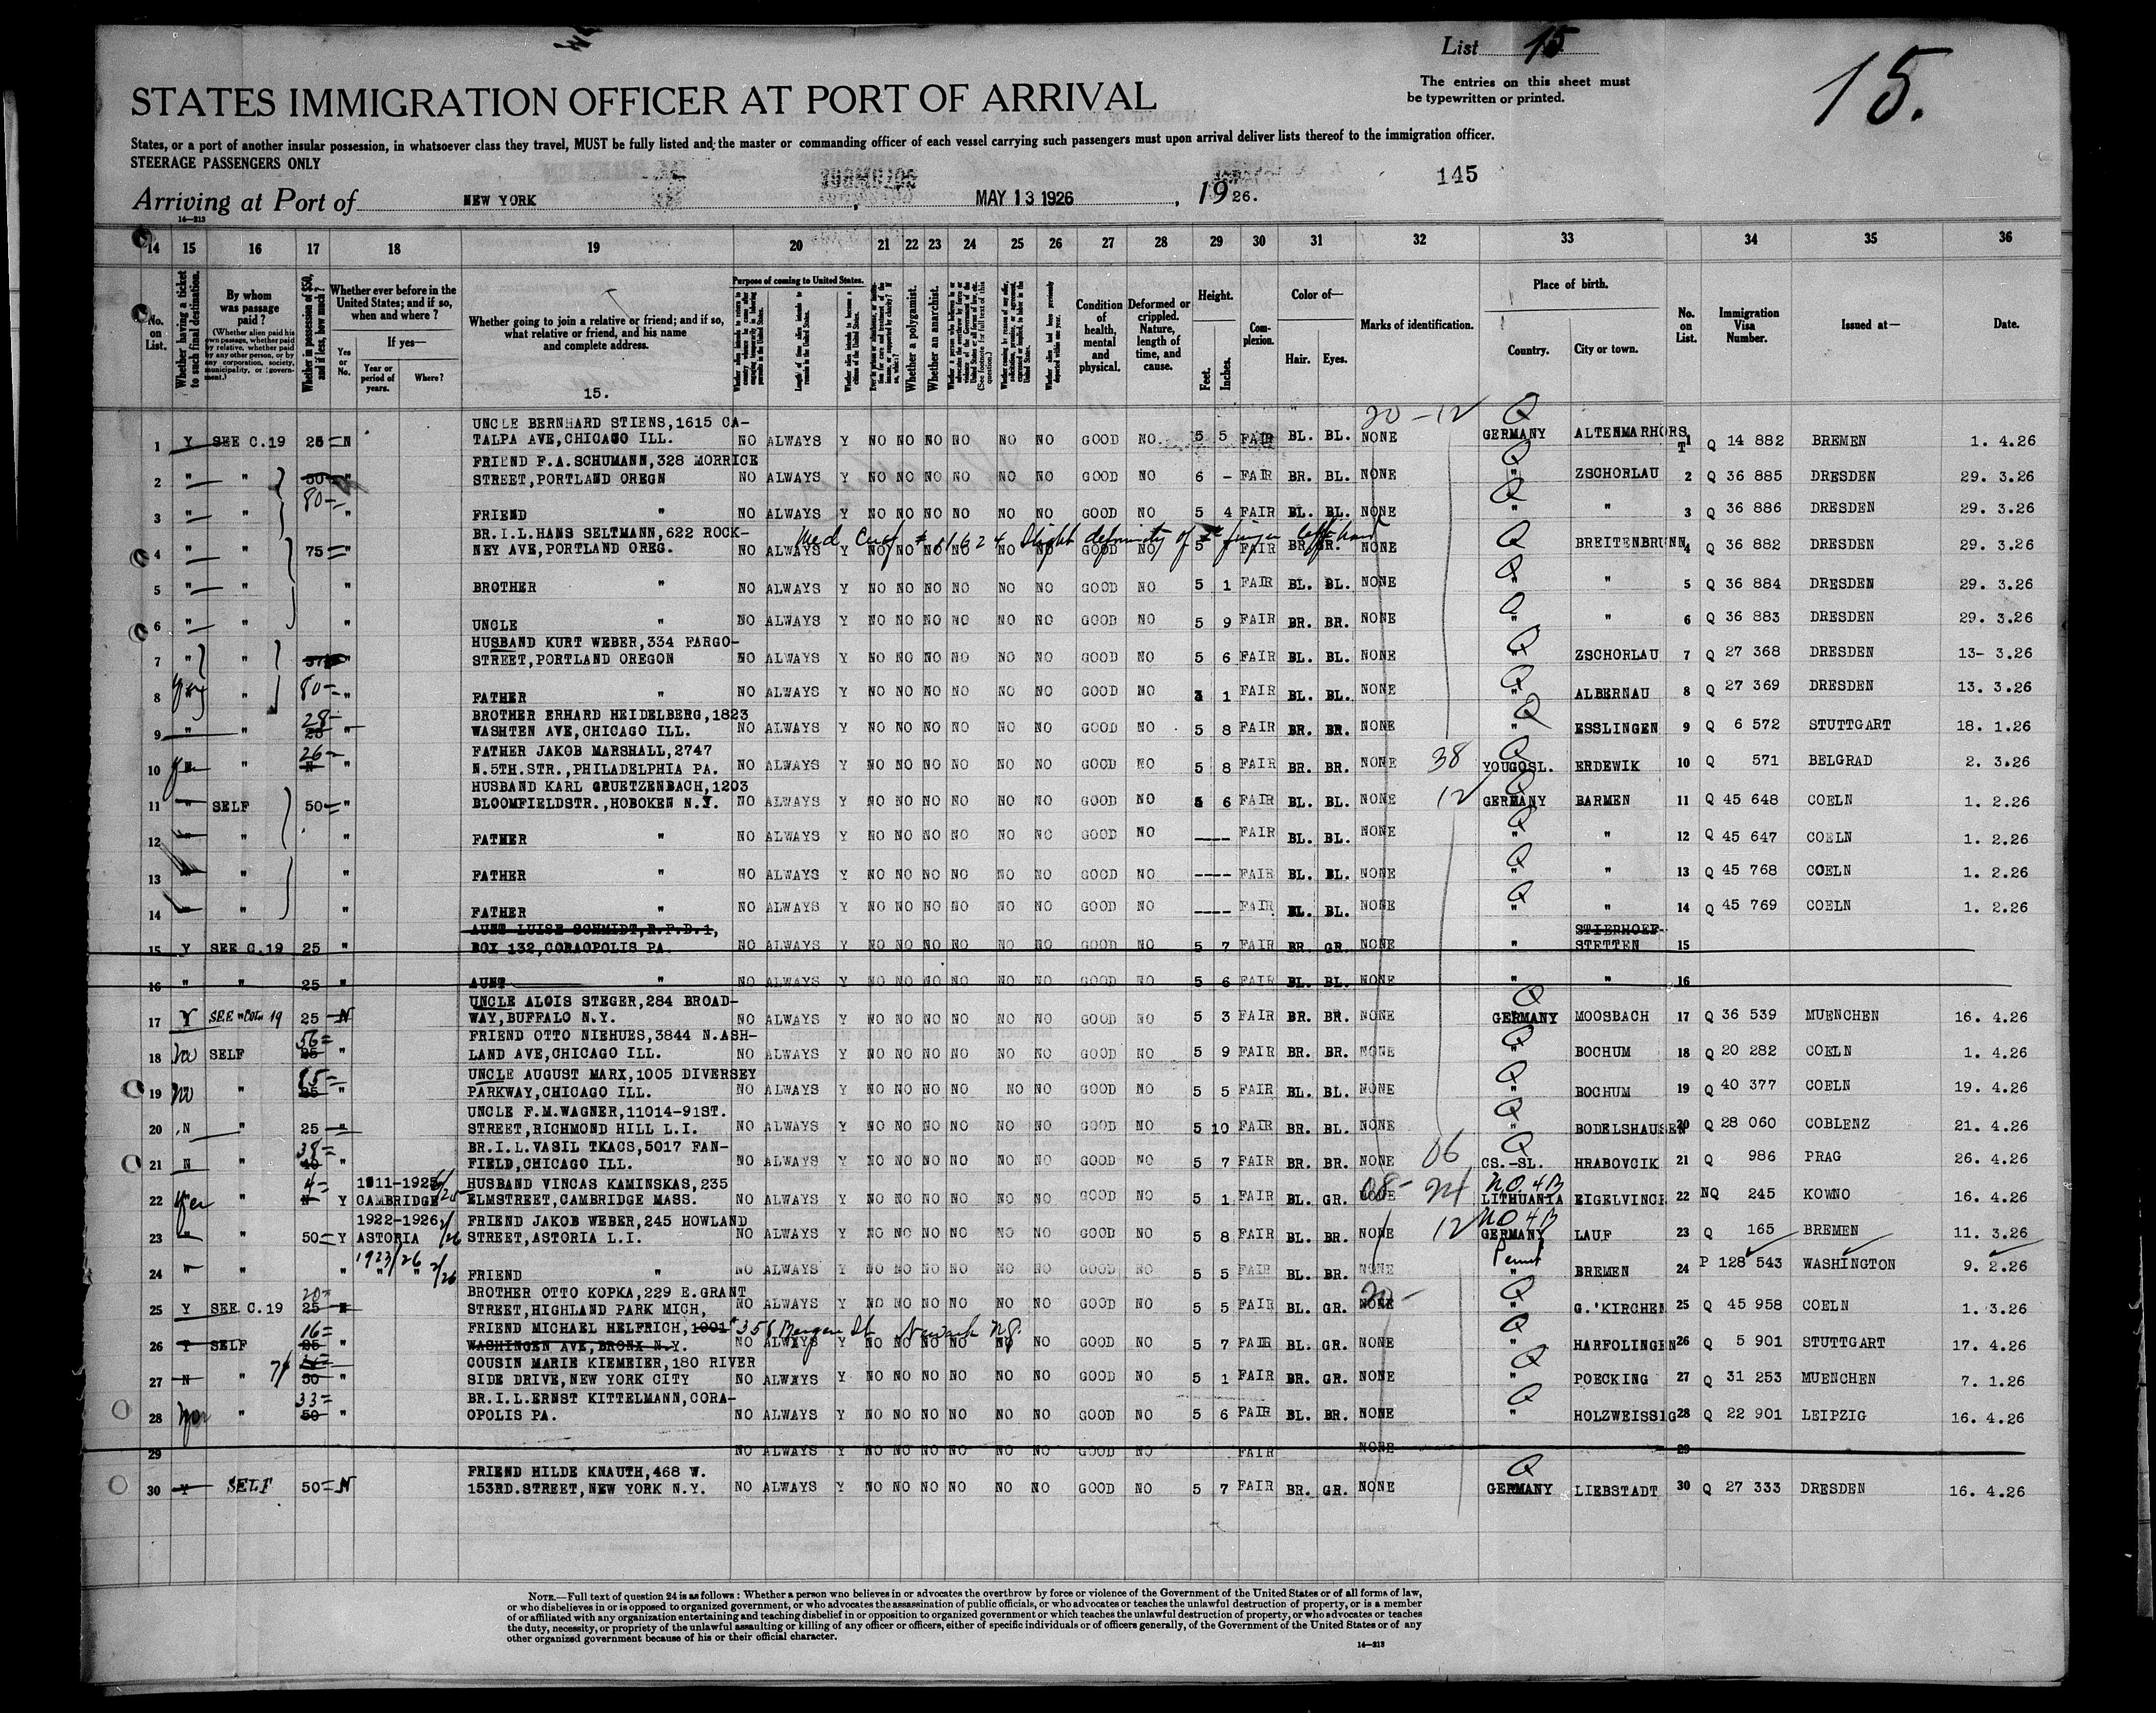 List 15
The entries on this sheet must
be typewritten or printed.
15.
STATES IMMIGRATION OFFICER AT PORT OF ARRIVAL
States, or a port of another insular possession, in whatsoever class they travel, MUST be fully listed and the master or commanding officer of each vessel carrying such passengers must upon arrival deliver lists thereof to the immigration officer.
STEERAGE PASSENGERS ONLY
145
Arriving at Port of NEW YORK, MAY 13 1926, 1926.
14—213
14 15 16 17 18 19 20 21 22 23 24 25 26 27 28 29 30 31 32 33 34 35 36
No. on List.
Whether having a ticket to such final destination.
By whom was passage paid?
(Whether alien paid his own passage, whether paid by relative, whether paid by any other person, or by any corporation, society, municipality, or government.)
Whether in possession of $50, and if less, how much?
Whether ever before in the United States; and if so, when and where?
Yes or No.
If yes—
Year or period of years.
Where?
Whether going to join a relative or friend; and if so, what relative or friend, and his name and complete address.
15.
Purpose of coming to United States.
Whether a polygamist.
Whether an anarchist.
Condition of health, mental and physical.
Deformed or crippled. Nature, length of time, and cause.
Height.
Feet. Inches.
Complexion.
Color of—
Hair. Eyes.
Marks of identification.
Place of birth.
Country. City or town.
No. on List.
Immigration Visa Number.
Issued at—
Date.
20 - 12
UNCLE BERNHARD STIENS,1615 CA-
1 Y SEE C.19 25 N TALPA AVE,CHICAGO ILL. NO ALWAYS Y NO NO NO NO NO NO GOOD NO. 5 5 FAIR BL. BL. NONE Q GERMANY ALTENMARHORST 1 Q 14 882 BREMEN 1. 4.26
FRIEND F.A.SCHUMANN,328 MORRICE
2 " " 50 " STREET,PORTLAND OREGN NO ALWAYS Y NO NO NO NO NO NO GOOD NO 6 - FAIR BR. BL. NONE Q " ZSCHORLAU 2 Q 36 885 DRESDEN 29. 3.26
3 " " 80- " FRIEND " NO ALWAYS Y NO NO NO NO NO NO GOOD NO 5 4 FAIR BL. BL. NONE Q " " 3 Q 36 886 DRESDEN 29. 3.26
BR.I.L.HANS SELTMANN,622 ROCK- Med. Cert # 81624 Slight deformity of finger left hand
4 " " 75 " NEY AVE,PORTLAND OREG. NO ALWAYS Y NO NO NO NO NO NO GOOD NO 5 FAIR BR. BR. NONE Q BREITENBRUNN 4 Q 36 882 DRESDEN 29. 3.26
5 " " " BROTHER " NO ALWAYS Y NO NO NO NO NO NO GOOD NO 5 1 FAIR BL. BL. NONE Q " " 5 Q 36 884 DRESDEN 29. 3.26
6 " " " UNCLE " NO ALWAYS Y NO NO NO NO NO NO GOOD NO 5 9 FAIR BR. BR. NONE Q " " 6 Q 36 883 DRESDEN 29. 3.26
HUSBAND KURT WEBER,334 FARGO-
7 " " " STREET,PORTLAND OREGON NO ALWAYS Y NO NO NO NO NO NO GOOD NO 5 6 FAIR BL. BL. NONE Q " ZSCHORLAU 7 Q 27 368 DRESDEN 13- 3.26
8 " " 80- " FATHER " NO ALWAYS Y NO NO NO NO NO NO GOOD NO 3 1 FAIR BL. BL. NONE Q " ALBERNAU 8 Q 27 369 DRESDEN 13. 3.26
BROTHER ERHARD HEIDELBERG,1823
9 " " 28- " WASHTEN AVE,CHICAGO ILL. NO ALWAYS Y NO NO NO NO NO NO GOOD NO 5 8 FAIR BR. BR. NONE Q " ESSLINGEN 9 Q 6 572 STUTTGART 18. 1.26
FATHER JAKOB MARSHALL,2747
10 " 26- " N.5TH.STR.,PHILADELPHIA PA. NO ALWAYS Y NO NO NO NO NO NO GOOD NO 5 8 FAIR BR. BR. NONE 38 Q YOUGOSL. ERDEWIK 10 Q 571 BELGRAD 2. 3.26
HUSBAND KARL GRUETZENBACH,1203
11 " SELF 50 " BLOOMFIELDSTR.,HOBOKEN N.Y. NO ALWAYS Y NO NO NO NO NO NO GOOD NO 5 6 FAIR BL. BL. NONE 12 Q GERMANY BARMEN 11 Q 45 648 COELN 1. 2.26
12 " " " FATHER " NO ALWAYS Y NO NO NO NO NO NO GOOD NO ---- FAIR BL. BL. NONE Q " " 12 Q 45 647 COELN 1. 2.26
13 " " " FATHER " NO ALWAYS Y NO NO NO NO NO NO GOOD NO ---- FAIR BL. BL. NONE Q " " 13 Q 45 768 COELN 1. 2.26
14 " " " FATHER " NO ALWAYS Y NO NO NO NO NO NO GOOD NO ---- FAIR BL. BL. NONE Q " " 14 Q 45 769 COELN 1. 2.26
AUNT LUISE SCHMIDT,R.F.D.1, STIERHOEF-
15 Y SEE C.19 25 " BOX 132,CORAOPOLIS PA. NO ALWAYS Y NO NO NO NO NO NO GOOD NO 5 7 FAIR BR GR. NONE " STETTEN 15
16 " " 25 " AUNT " NO ALWAYS Y NO NO NO NO NO NO GOOD NO 5 6 FAIR BL. BL. NONE " " 16
UNCLE ALOIS STEGER,284 BROAD-
17 Y SEE "COL. 19 25 N WAY,BUFFALO N.Y. NO ALWAYS Y NO NO NO NO NO NO GOOD NO 5 3 FAIR BR. BR. NONE Q GERMANY MOOSBACH 17 Q 36 539 MUENCHEN 16. 4.26
FRIEND OTTO NIEHUES,3844 N.ASH-
18 no SELF 56 25 " LAND AVE,CHICAGO ILL. NO ALWAYS Y NO NO NO NO NO NO GOOD NO 5 9 FAIR BR. BR. NONE Q " BOCHUM 18 Q 20 282 COELN 1. 4.26
UNCLE AUGUST MARX,1005 DIVERSEY
19 no " " PARKWAY,CHICAGO ILL. NO ALWAYS Y NO NO NO NO NO NO GOOD NO 5 5 FAIR BL. BL. NONE Q " BOCHUM 19 Q 40 377 COELN 19. 4.26
UNCLE F.M.WAGNER,11014-91ST.
20 N " 25 " STREET,RICHMOND HILL L.I. NO ALWAYS Y NO NO NO NO NO NO GOOD NO 5 10 FAIR BR. BL. NONE Q " BODELSHAUSEN 20 Q 28 060 COBLENZ 21. 4.26
BR.I.L.VASIL TKACS,5017 FAN-
21 N " 38 40 " FIELD,CHICAGO ILL. NO ALWAYS Y NO NO NO NO NO NO GOOD NO 5 7 FAIR BR. BR. NONE 06 Q CS.-SL. HRABOVCIK 21 Q 986 PRAG 26. 4.26
1911-1925 HUSBAND VINCAS KAMINSKAS,235
22 yes " 4 N Y CAMBRIDGE ELMSTREET,CAMBRIDGE MASS. NO ALWAYS Y NO NO NO NO NO NO GOOD NO 5 1 FAIR BL. GR. NONE 08- 24 NQ 4B LITHUANIA EIGELVINCE 22 NQ 245 KOWNO 16. 4.26
1922-1926 2/26 FRIEND JAKOB WEBER,245 HOWLAND
23 " " 50 Y ASTORIA STREET,ASTORIA L.I. NO ALWAYS Y NO NO NO NO NO NO GOOD NO 5 8 FAIR BL. BR. NONE 12 NQ 4B GERMANY LAUF 23 Q 165 BREMEN 11. 3.26
1923/26 2/26
24 " " " " " FRIEND " NO ALWAYS Y NO NO NO NO NO NO GOOD NO 5 5 FAIR BL. BR. NONE Permit " BREMEN 24 P 128 543 WASHINGTON 9. 2.26
BROTHER OTTO KOPKA,229 E.GRANT
25 Y SEE C.19 20 25 N STREET,HIGHLAND PARK MICH, NO ALWAYS Y NO NO NO NO NO NO GOOD NO 5 5 FAIR BL. GR. NONE 20- Q " G.'KIRCHEN 25 Q 45 958 COELN 1. 3.26
FRIEND MICHAEL HELFRICH,1001 358 Morgan St Newark N.J.
26 Y SELF 16 25 " WASHINGEN AVE,BRONX N.Y. NO ALWAYS Y NO NO NO NO NO NO GOOD NO 5 7 FAIR BL. GR. NONE Q " HARFOLINGEN 26 Q 5 901 STUTTGART 17. 4.26
COUSIN MARIE KIEMEIER,180 RIVER
27 N " 50 " SIDE DRIVE,NEW YORK CITY NO ALWAYS Y NO NO NO NO NO NO GOOD NO 5 1 FAIR BR. GR. NONE Q " POECKING 27 Q 31 253 MUENCHEN 7. 1.26
BR.I.L.ERNST KITTELMANN,CORA-
28 " 33 50 " OPOLIS PA. NO ALWAYS Y NO NO NO NO NO NO GOOD NO 5 6 FAIR BL. BR. NONE Q " HOLZWEISSIG 28 Q 22 901 LEIPZIG 16. 4.26
29 NO ALWAYS Y NO NO NO NO NO NO GOOD NO FAIR NONE 29
FRIEND HILDE KNAUTH,468 W.
30 Y SELF 50 N 153RD.STREET,NEW YORK N.Y. NO ALWAYS Y NO NO NO NO NO NO GOOD NO 5 7 FAIR BR. GR. NONE Q GERMANY LIEBSTADT 30 Q 27 333 DRESDEN 16. 4.26
NOTE.—Full text of question 24 is as follows: Whether a person who believes in or advocates the overthrow by force or violence of the Government of the United States or of all forms of law,
or who disbelieves in or is opposed to organized government, or who advocates the assassination of public officials, or who advocates or teaches the unlawful destruction of property, or is a member
of or affiliated with any organization entertaining and teaching disbelief in or opposition to organized government or which teaches the unlawful destruction of property, or who advocates or teaches
the duty, necessity, or propriety of the unlawful assaulting or killing of any officer or officers, either of specific individuals or of officers generally, of the Government of the United States or of any
other organized government because of his or their official character.
14—213